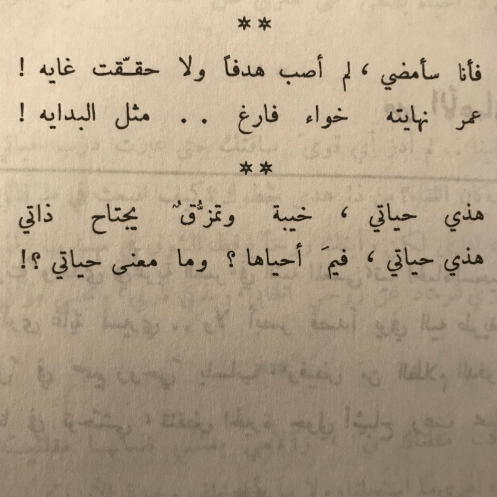 **
فأنا سأمضي ، لم أصب هدفاً ولا حقـّقت غايه !
عمر نهايته خواء فارغ .. مثل البدايه !
**
هذي حياتي ، خيبة وتمزُّقٌ يجتاح ذاتي
هذي حياتي ، فيمَ أحياها ؟ وما معنى حياتي ؟!